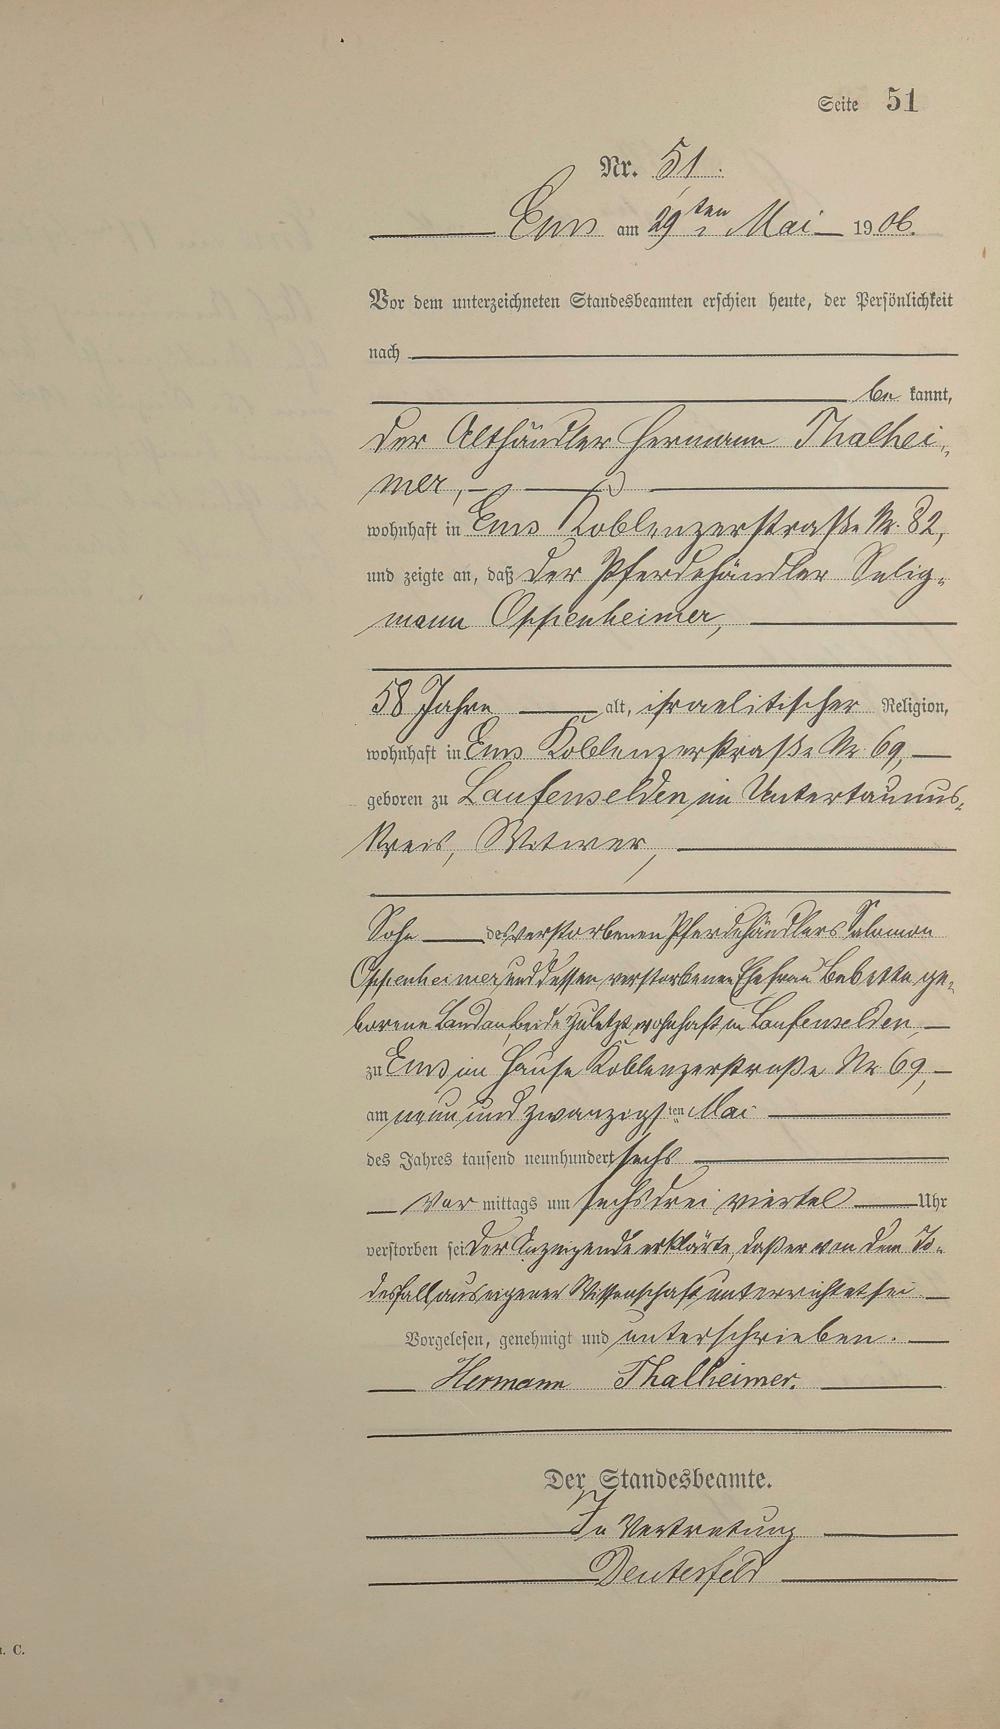 Seite 51
Nr. 51.
Ems am 29ten Mai 1906.
Vor dem unterzeichneten Standesbeamten erschien heute, der Persönlichkeit
nach
be kannt,
der Althändler Hermann Thalhei-
mer,
wohnhaft in Ems Koblenzerstraße Nr. 82,
und zeigte an, daß der Pferdehändler Selig-
mann Oppenheimer,
58 Jahre alt, israelitischer Religion,
wohnhaft in Ems Koblenzerstraße Nr. 69,
geboren zu Laufenselden im Untertaunus-
kreis, Witwer,
Sohn des verstorbenen Pferdehändlers Salomon
Oppenheimer und dessen verstorbenen Ehefrau Babette ge-
borene Landau, beide zuletzt wohnhaft in Laufenselden,
zu Ems im Hause Koblenzerstraße Nr. 69,
am neun und zwanzigsten Mai
des Jahres tausend neunhundert sechs
Vor mittags um sechs drei viertel Uhr
verstorben sei. Der Anzeigende erklärte, daß er von dem To-
desfall aus eigener Wissenschaft unterrichtet sei.
Vorgelesen, genehmigt und unterschrieben.
Hermann Thalheimer.
Der Standesbeamte.
In Vertretung
C.